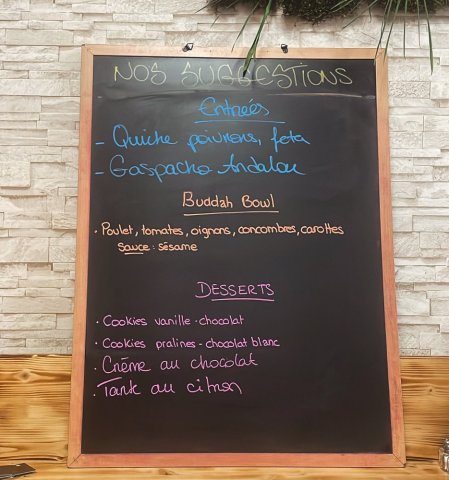 NOS SUGGESTIONS
Entrées
- Quiche poivrons, feta
- Gaspacho Andalou
Buddah Bowl
· Poulet, tomates, oignons, concombres, carottes
Sauce : sésame
DESSERTS
· Cookies vanille - chocolat
· Cookies pralines - chocolat blanc
· Crème au chocolat
· Tarte au citron